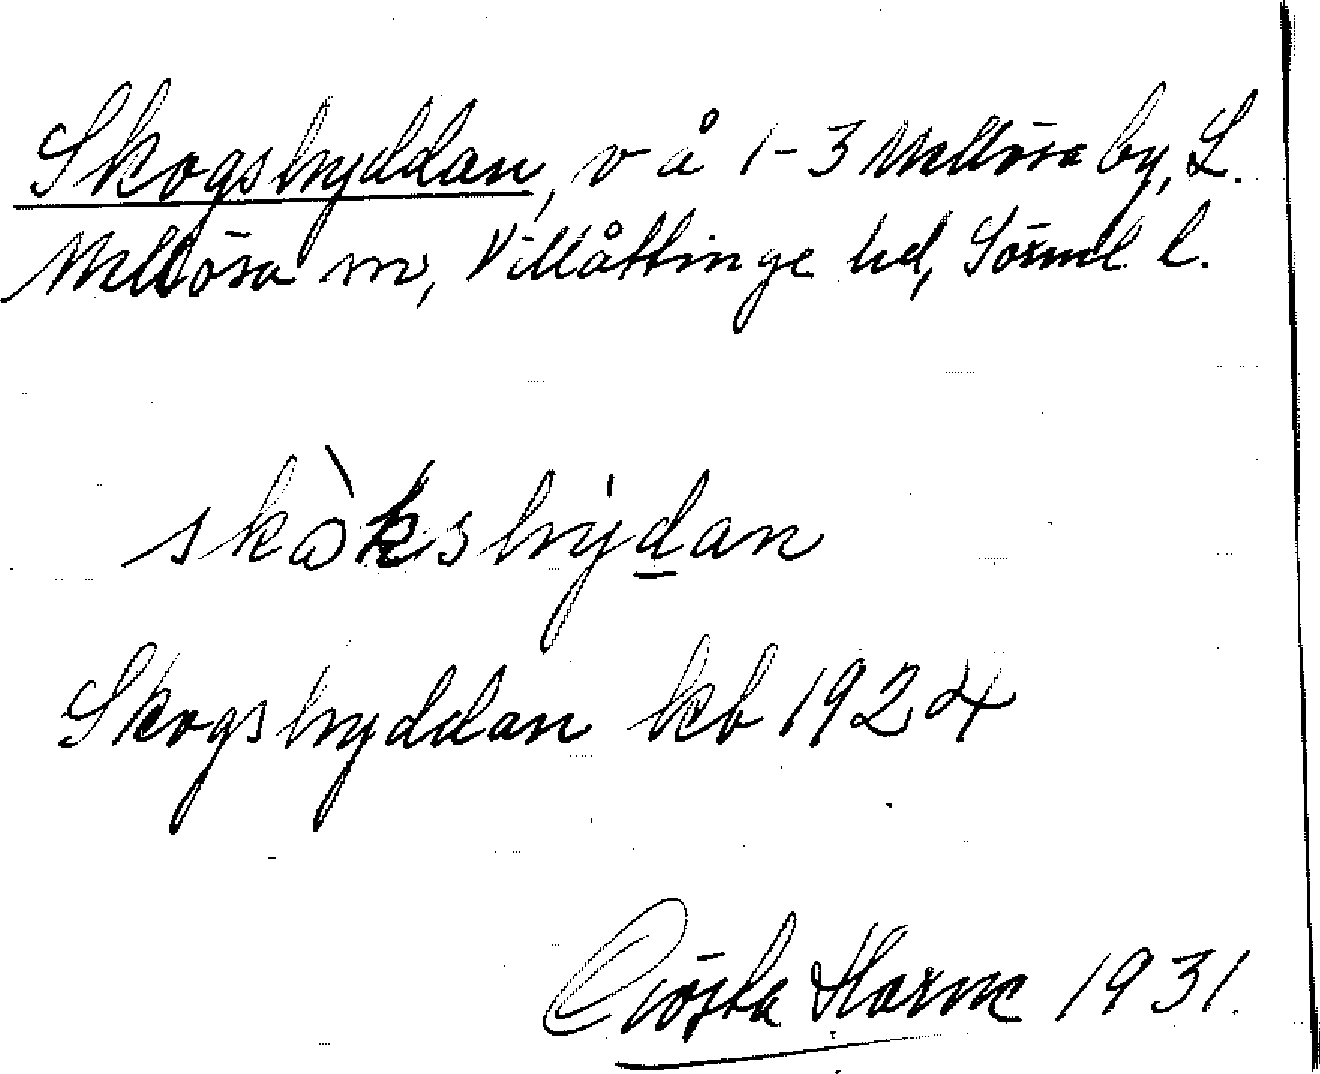 Skogshyddan, v å 1-3 Mellösa by, L.
Mellösa sn, Villåttinge hd, Sörml. l.
skòkshýḏan
Skogshyddan kb 1924
Gösta Harne 1931.